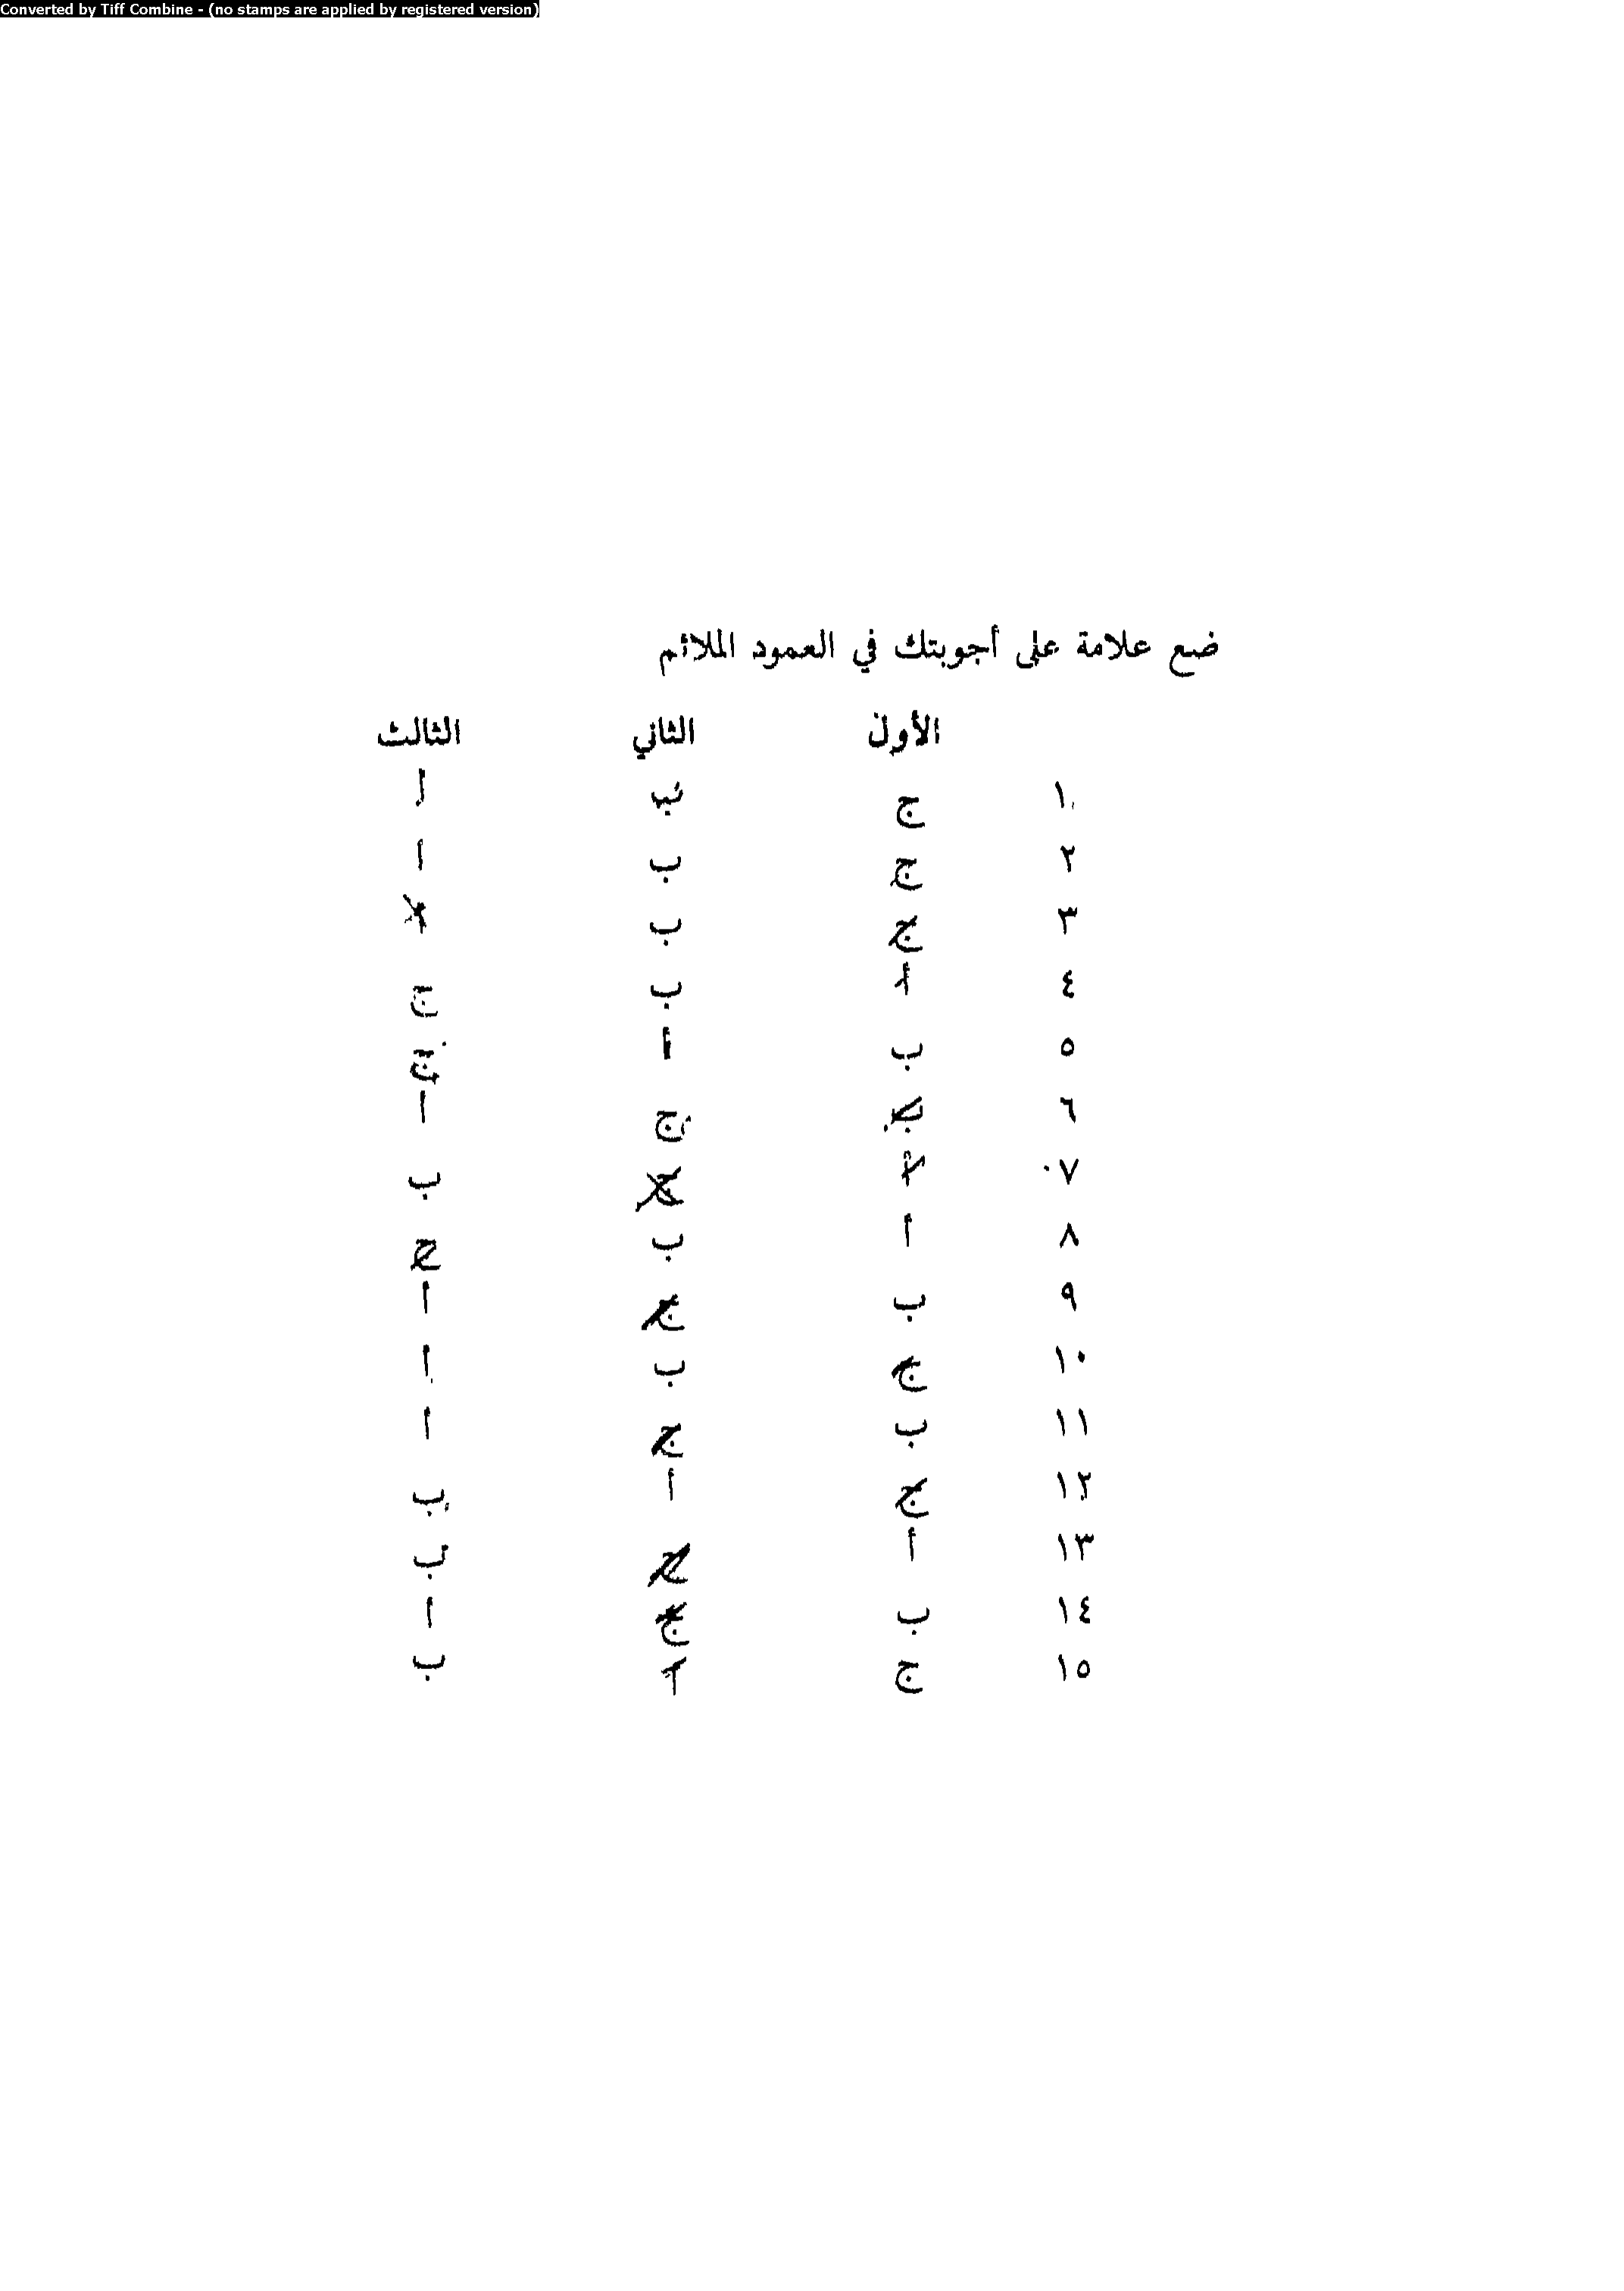 Converted by Tiff Combine - (no stamps are applied by registered version)
ضع علامة على أجوبتك في العمود الملائم
الأول الثاني الثالث
١ ج ب أ
٢ ج ب أ
٣ ج ب أ
٤ أ ب ج
٥ ب أ ج
٦ ب ج أ
٧ أ ج ب
٨ أ ب ج
٩ ب ج أ
١٠ ج ب أ
١١ ب ج أ
١٢ ج أ ب
١٣ أ ج ب
١٤ ب ج أ
١٥ ج أ ب